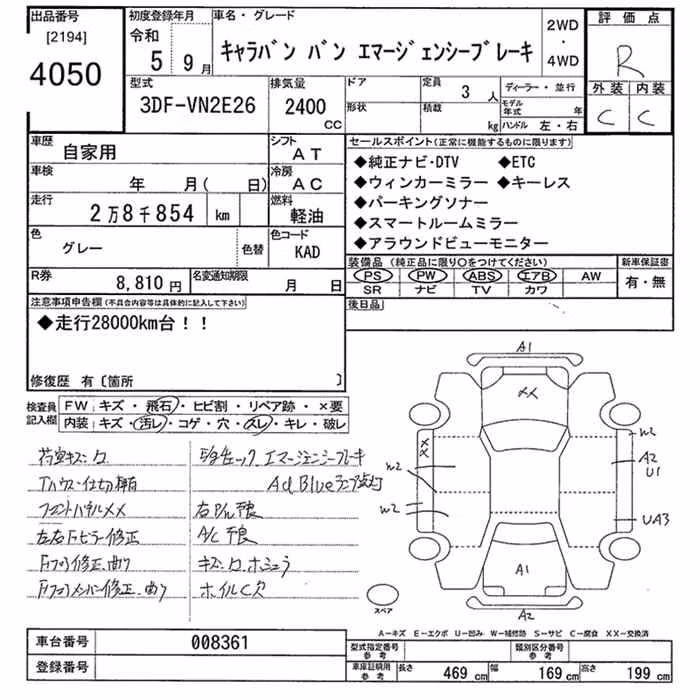 出品番号
[2194]
4050
初度登録年月
令和
5 9月
車名・グレード
キャラバン バン エマージェンシーブレーキ
2WD
・
4WD
評価点
R
外装 内装
C C
型式
3DF-VN2E26
排気量
2400
CC
ドア
形状
定員
3 人
積載
kg
ディーラー・並行
モデル年式 年
ハンドル 左・右
車歴
自家用
シフト
AT
車検
年 月( 日)
冷房
AC
走行
2万8千854 km
燃料
軽油
色
グレー
色替
色コード
KAD
R券
8,810円
名変通知期限
月 日
セールスポイント(正常に機能するものに限ります)
◆純正ナビ・DTV ◆ETC
◆ウィンカーミラー ◆キーレス
◆パーキングソナー
◆スマートルームミラー
◆アラウンドビューモニター
装備品 (純正品に限り○をつけてください)
PS PW ABS エアB AW
SR ナビ TV カワ
新車保証書
有・無
後日品
注意事項申告欄(不具合内容等は具体的に記入して下さい)
◆走行28000km台!!
修復歴 有〔箇所 〕
検査員
記入欄
FW キズ・飛石・ヒビ割・リペア跡・×要
内装 キズ・汚レ・コゲ・穴・スレ・キレ・破レ
エマージェンシーブレーキ
AdBlueランプ点灯
フロントパネルXX
左右Fピラー修正
A/C 不良
ホイルC欠
A1
XX
XX
W2
W2
W2
A2
U1
UA3
A1
A2
スペア
A-キズ E-エクボ U-凹み W-補修跡 S-サビ C-腐食 XX-交換済
車台番号
008361
登録番号
型式指定番号
参考
類別区分番号
参考
車庫証明用
参考
長さ 469 cm 幅 169 cm 高さ 199 cm